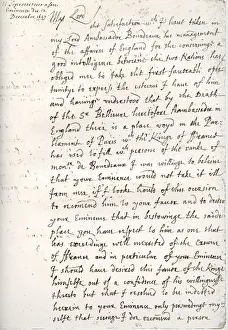 My Lord
the Satisfaction wch I have taken in
my Lord Ambassador Bourdeaux his management
of the affaires of England for the conserving a
good intelligence betweene the two Nations hath
obliged mee to take the first seasonable oportunity
to express the esteeme I have of him
and having understood that by the death
of the Sr Bellievre heretofore Ambassador in
England there is a place voyd in the Parliament
of Paris wch the Kings of France
has used to fill wth persons of the ranke of
monsr de Bourdeaux I was willing to believe
that your Eminence would not take it ill
from mee if I tooke hould of this occasion
to recomend him to your favor and to desire
your Eminence that in bestowinge the saide
place, you have respect to him as one that
has exceedingly well merited of the Crowne
of France and in particular of your Eminence
I should have desired this favor of the Kinge
himselfe out of a confidence of his willingness
thereto but that I resolved to be indebted
herein to your Eminence only perswadinge my
selfe that since I doe recomend a person